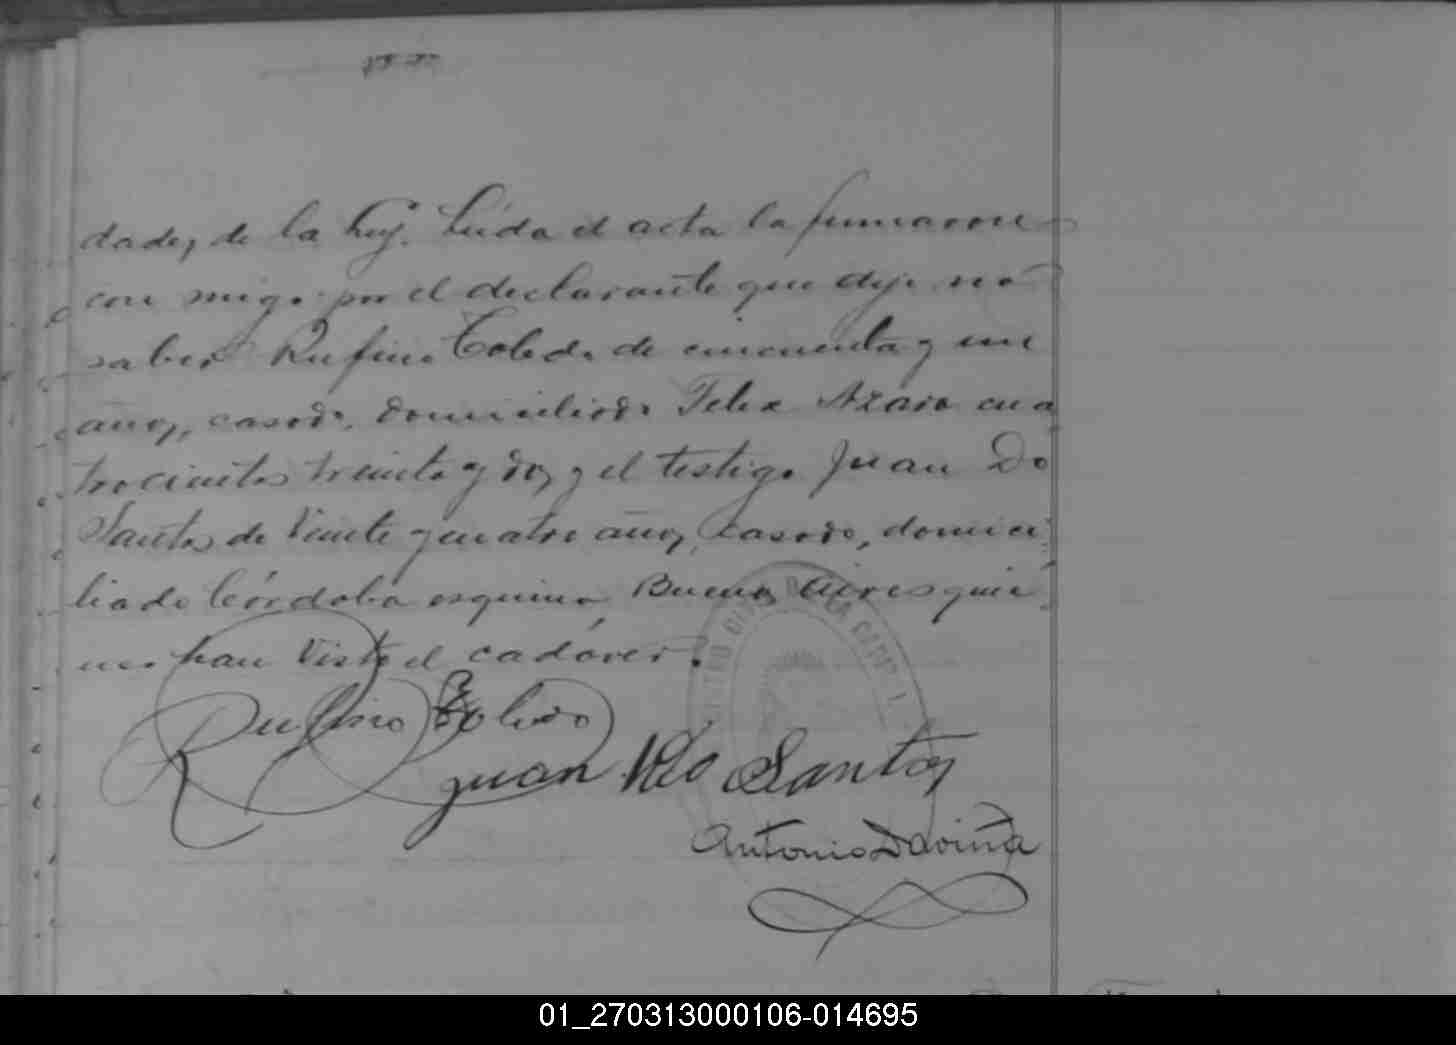 dades de la ley. Leida el acta la firmaron
con migo por el declarante que dijo no
saber Rufino Toledo de cincuenta y un
años, casado, domiciliado Felix Azara cua
trocientos treinta y dos y el testigo Juan Do
Santos de veinte y cuatro años, casado, domici
liado Córdoba esquina Buenos Aires quie
nes han visto el cadáver.
Rufino Toledo
Juan Do Santos
Antonio Daviña
01_270313000106-014695